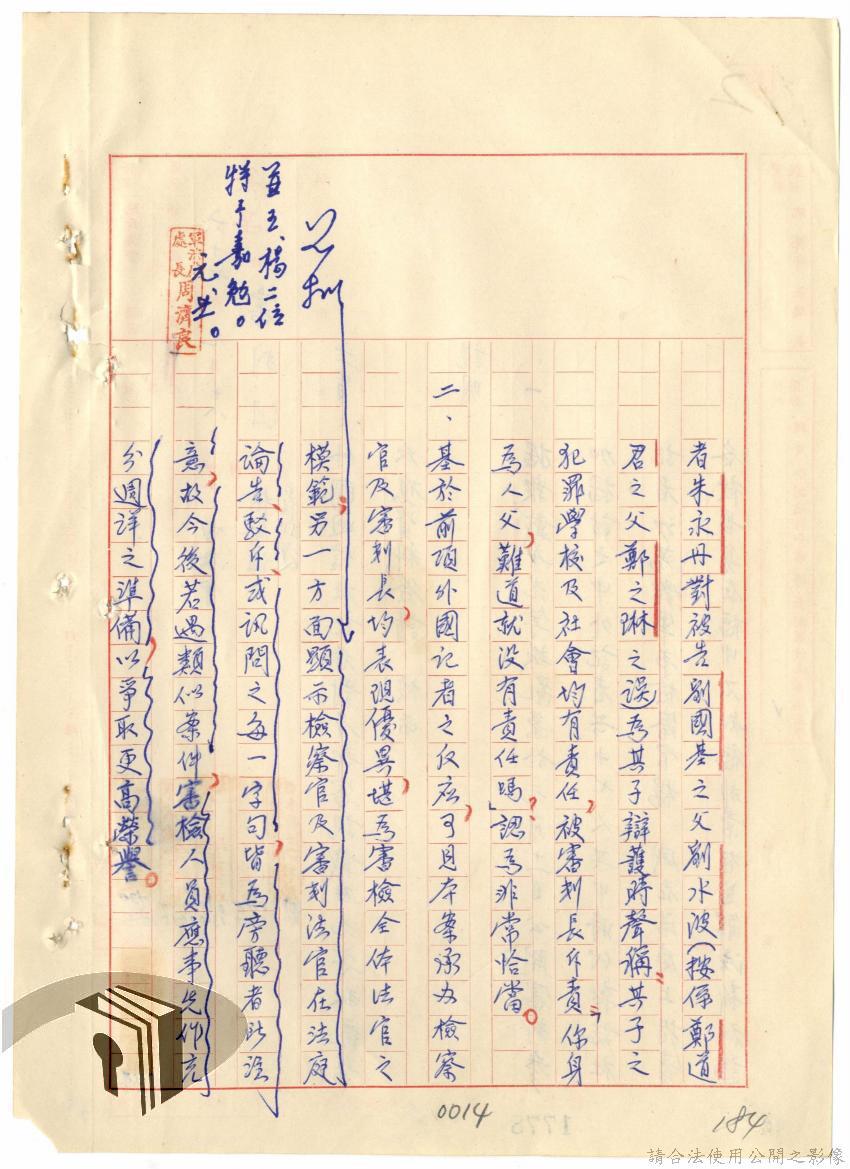 者朱永丹對被告劉國基之父劉水波(按係鄭道
君之父鄭之琳之誤為其子辯護時聲稱:其子之
犯罪學校及社會均有責任,被審判長斥責「你身
為人父,難道就沒有責任嗎?」認為非常恰當。
二、基於前項外國記者之反應,可見本案承办檢察
官及審判長,均表現優異,堪為審檢全体法官之
模範;另一方面顯示檢察官及審判法官在法庭
論告、駁斥或訊問之每一字句,皆為旁聽者所注
意,故今後若遇類似案件,審檢人員應事先作充
分週詳之準備,以爭取更高榮譽。
並王、楊二位
特予嘉勉。
處長周濟良
0014
184
請合法使用公開之影像